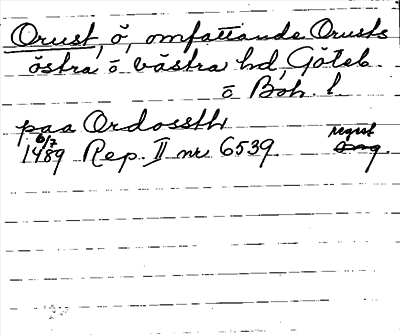 Orust, ö, omfattande Orusts
östra o västra hd, Göteb.
o Boh. l.
paa Ordossth
6/7
1489 Rep. II nr 6539
regest